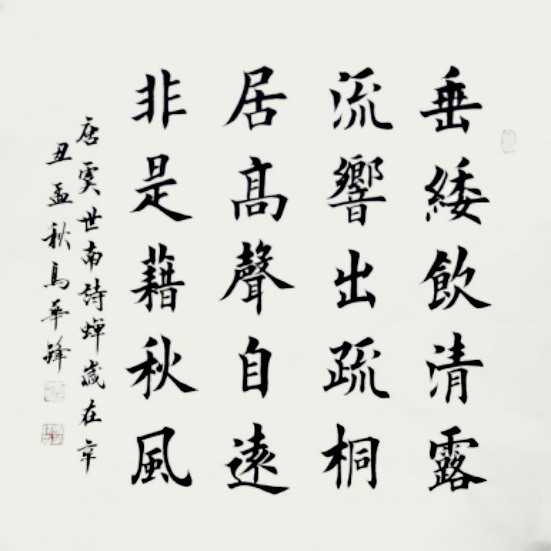 垂緌飲清露
流響出疏桐
居高聲自遠
非是藉秋風
唐虞世南詩蟬歲在辛
丑孟秋馬華鋒